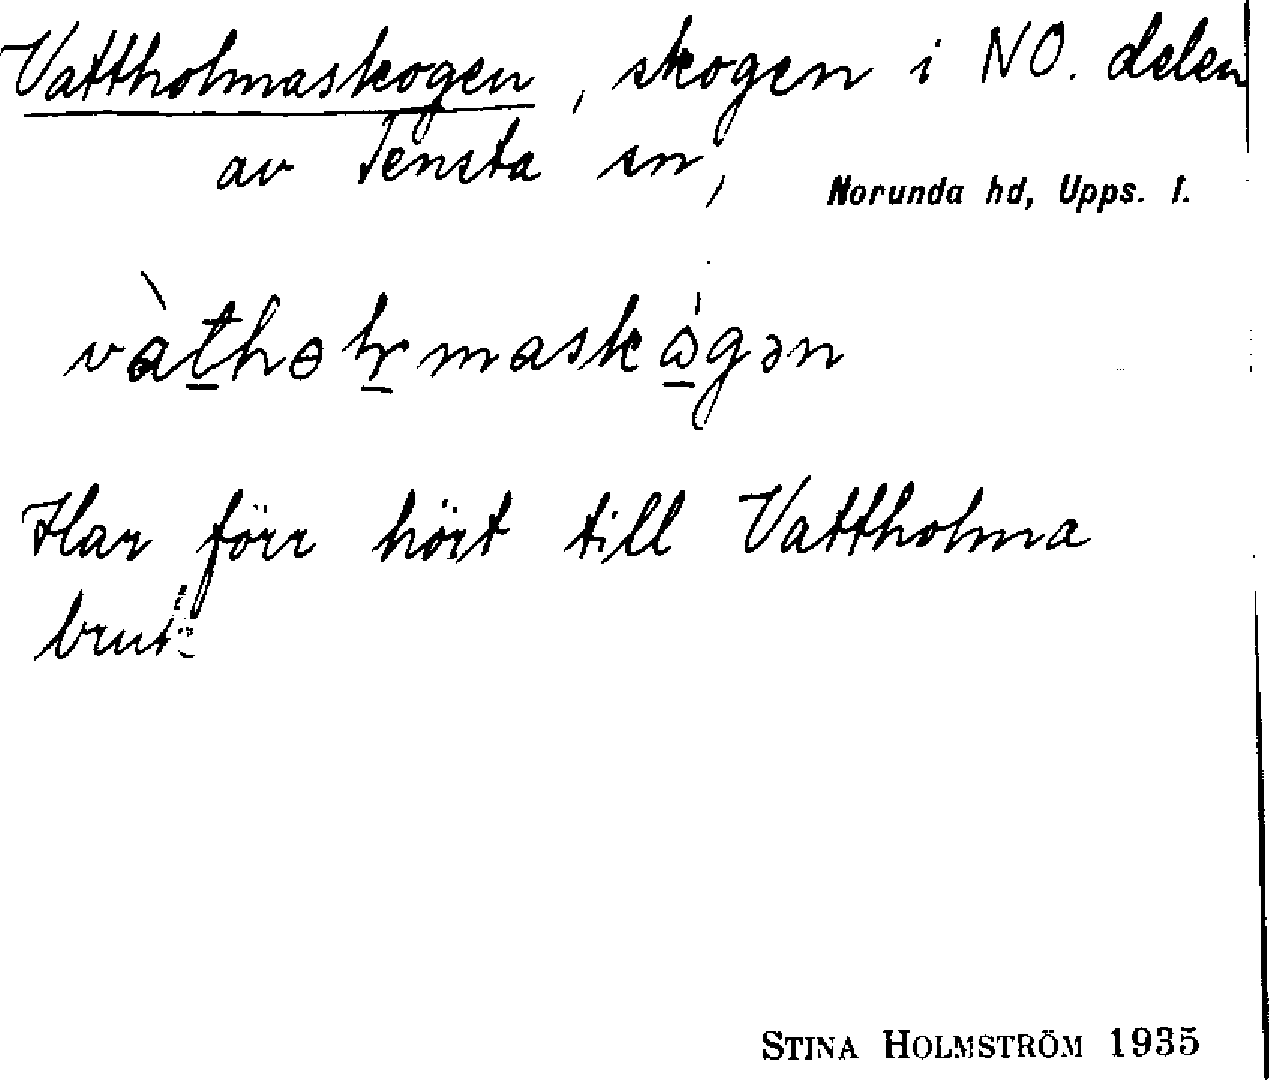 Vattholmaskogen, skogen i NO. delen
av Tensta sn, Norunda hd, Upps. l.
Har förr hört till Vattholma
bruk.
STINA HOLMSTRÖM 1935